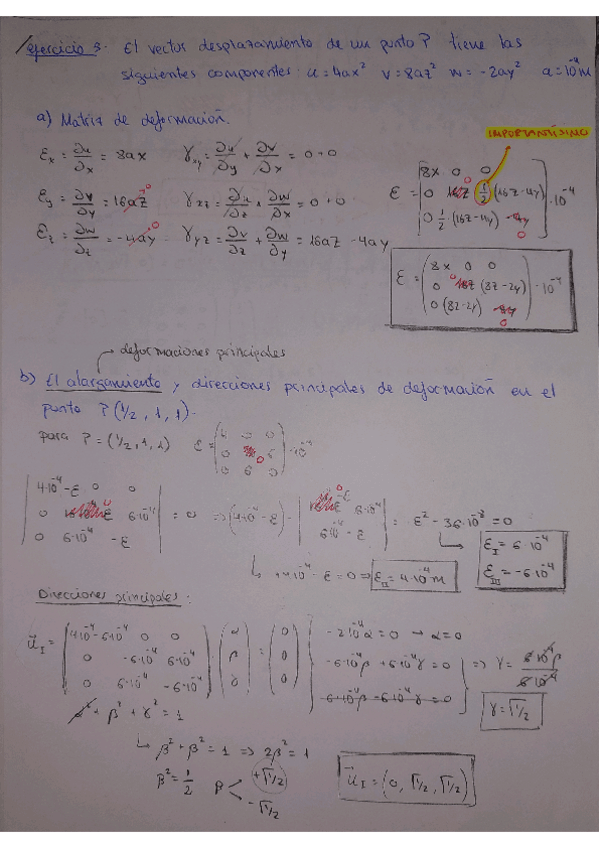 ejercicio 3. El vector desplazamiento de un punto P tiene las
siguientes componentes: u = 4ax² v = 8az² w = -2ay² a = 10⁻⁴ m
a) Matriz de deformación.
IMPORTANTÍSIMO
εx = ∂u/∂x = 8ax γxy = ∂u/∂y + ∂v/∂x = 0 + 0
εy = ∂v/∂y = 16az 0 γxz = ∂u/∂z + ∂w/∂x = 0 + 0
εz = ∂w/∂z = -4ay 0 γyz = ∂v/∂z + ∂w/∂y = 16az - 4ay
ε = (8x 0 0
0 0 1/2 (16z-4y)
0 1/2 (16z-4y) 0) · 10⁻⁴
ε = (8x 0 0
0 0 (8z-2y)
0 (8z-2y) 0) · 10⁻⁴
deformaciones principales
b) El alargamiento y direcciones principales de deformación en el
punto P (1/2, 1, 1).
para P = (1/2, 1, 1) ε = ( 0 0
0 0
0 6 0) · 10⁻⁴
|4·10⁻⁴ - ε 0 0
0 6·10⁻⁴
0 6·10⁻⁴ -ε| = 0 ⇒ (4·10⁻⁴ - ε) · | -ε 6·10⁻⁴
6·10⁻⁴ -ε| = ε² - 36·10⁻⁸ = 0
εI = 6·10⁻⁴
εIII = -6·10⁻⁴
↳ 4·10⁻⁴ - ε = 0 ⇒ εII = 4·10⁻⁴ m
Direcciones principales:
u⃗I = (4·10⁻⁴ - 6·10⁻⁴ 0 0
0 -6·10⁻⁴ 6·10⁻⁴
0 6·10⁻⁴ -6·10⁻⁴) (α β γ) = (0 0 0)
-2·10⁻⁴α = 0 → α = 0
-6·10⁻⁴β + 6·10⁻⁴γ = 0 ⇒ γ = 6·10⁻⁴β / 6·10⁻⁴
6·10⁻⁴β - 6·10⁻⁴γ = 0
γ = √1/2
α² + β² + γ² = 1
↳ β² + β² = 1 ⇒ 2β² = 1
β² = 1/2 β +√1/2
-√1/2
u⃗I = (0, √1/2, √1/2)